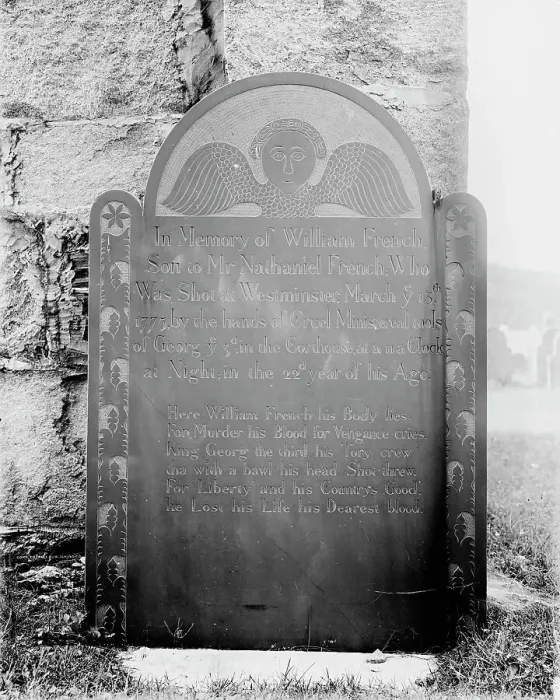 In Memory of William French,
Son to Mr Nathaniel French; Who
Was Shot at Westminster, March yͤ 13th
1775, by the hands of Cruel Ministereal tools
of Georg yͤ 3d; in the Corthouse, at a 11 a Clock
at Night, in the 22d year of his Age.
Here William French his Body lies.
For Murder his Blood for Vengance cries.
King Georg the third his Tory crew
tha with a bawl his head Shot threw.
For Liberty and his Countrys Good.
he Lost his Life his Dearest blood.